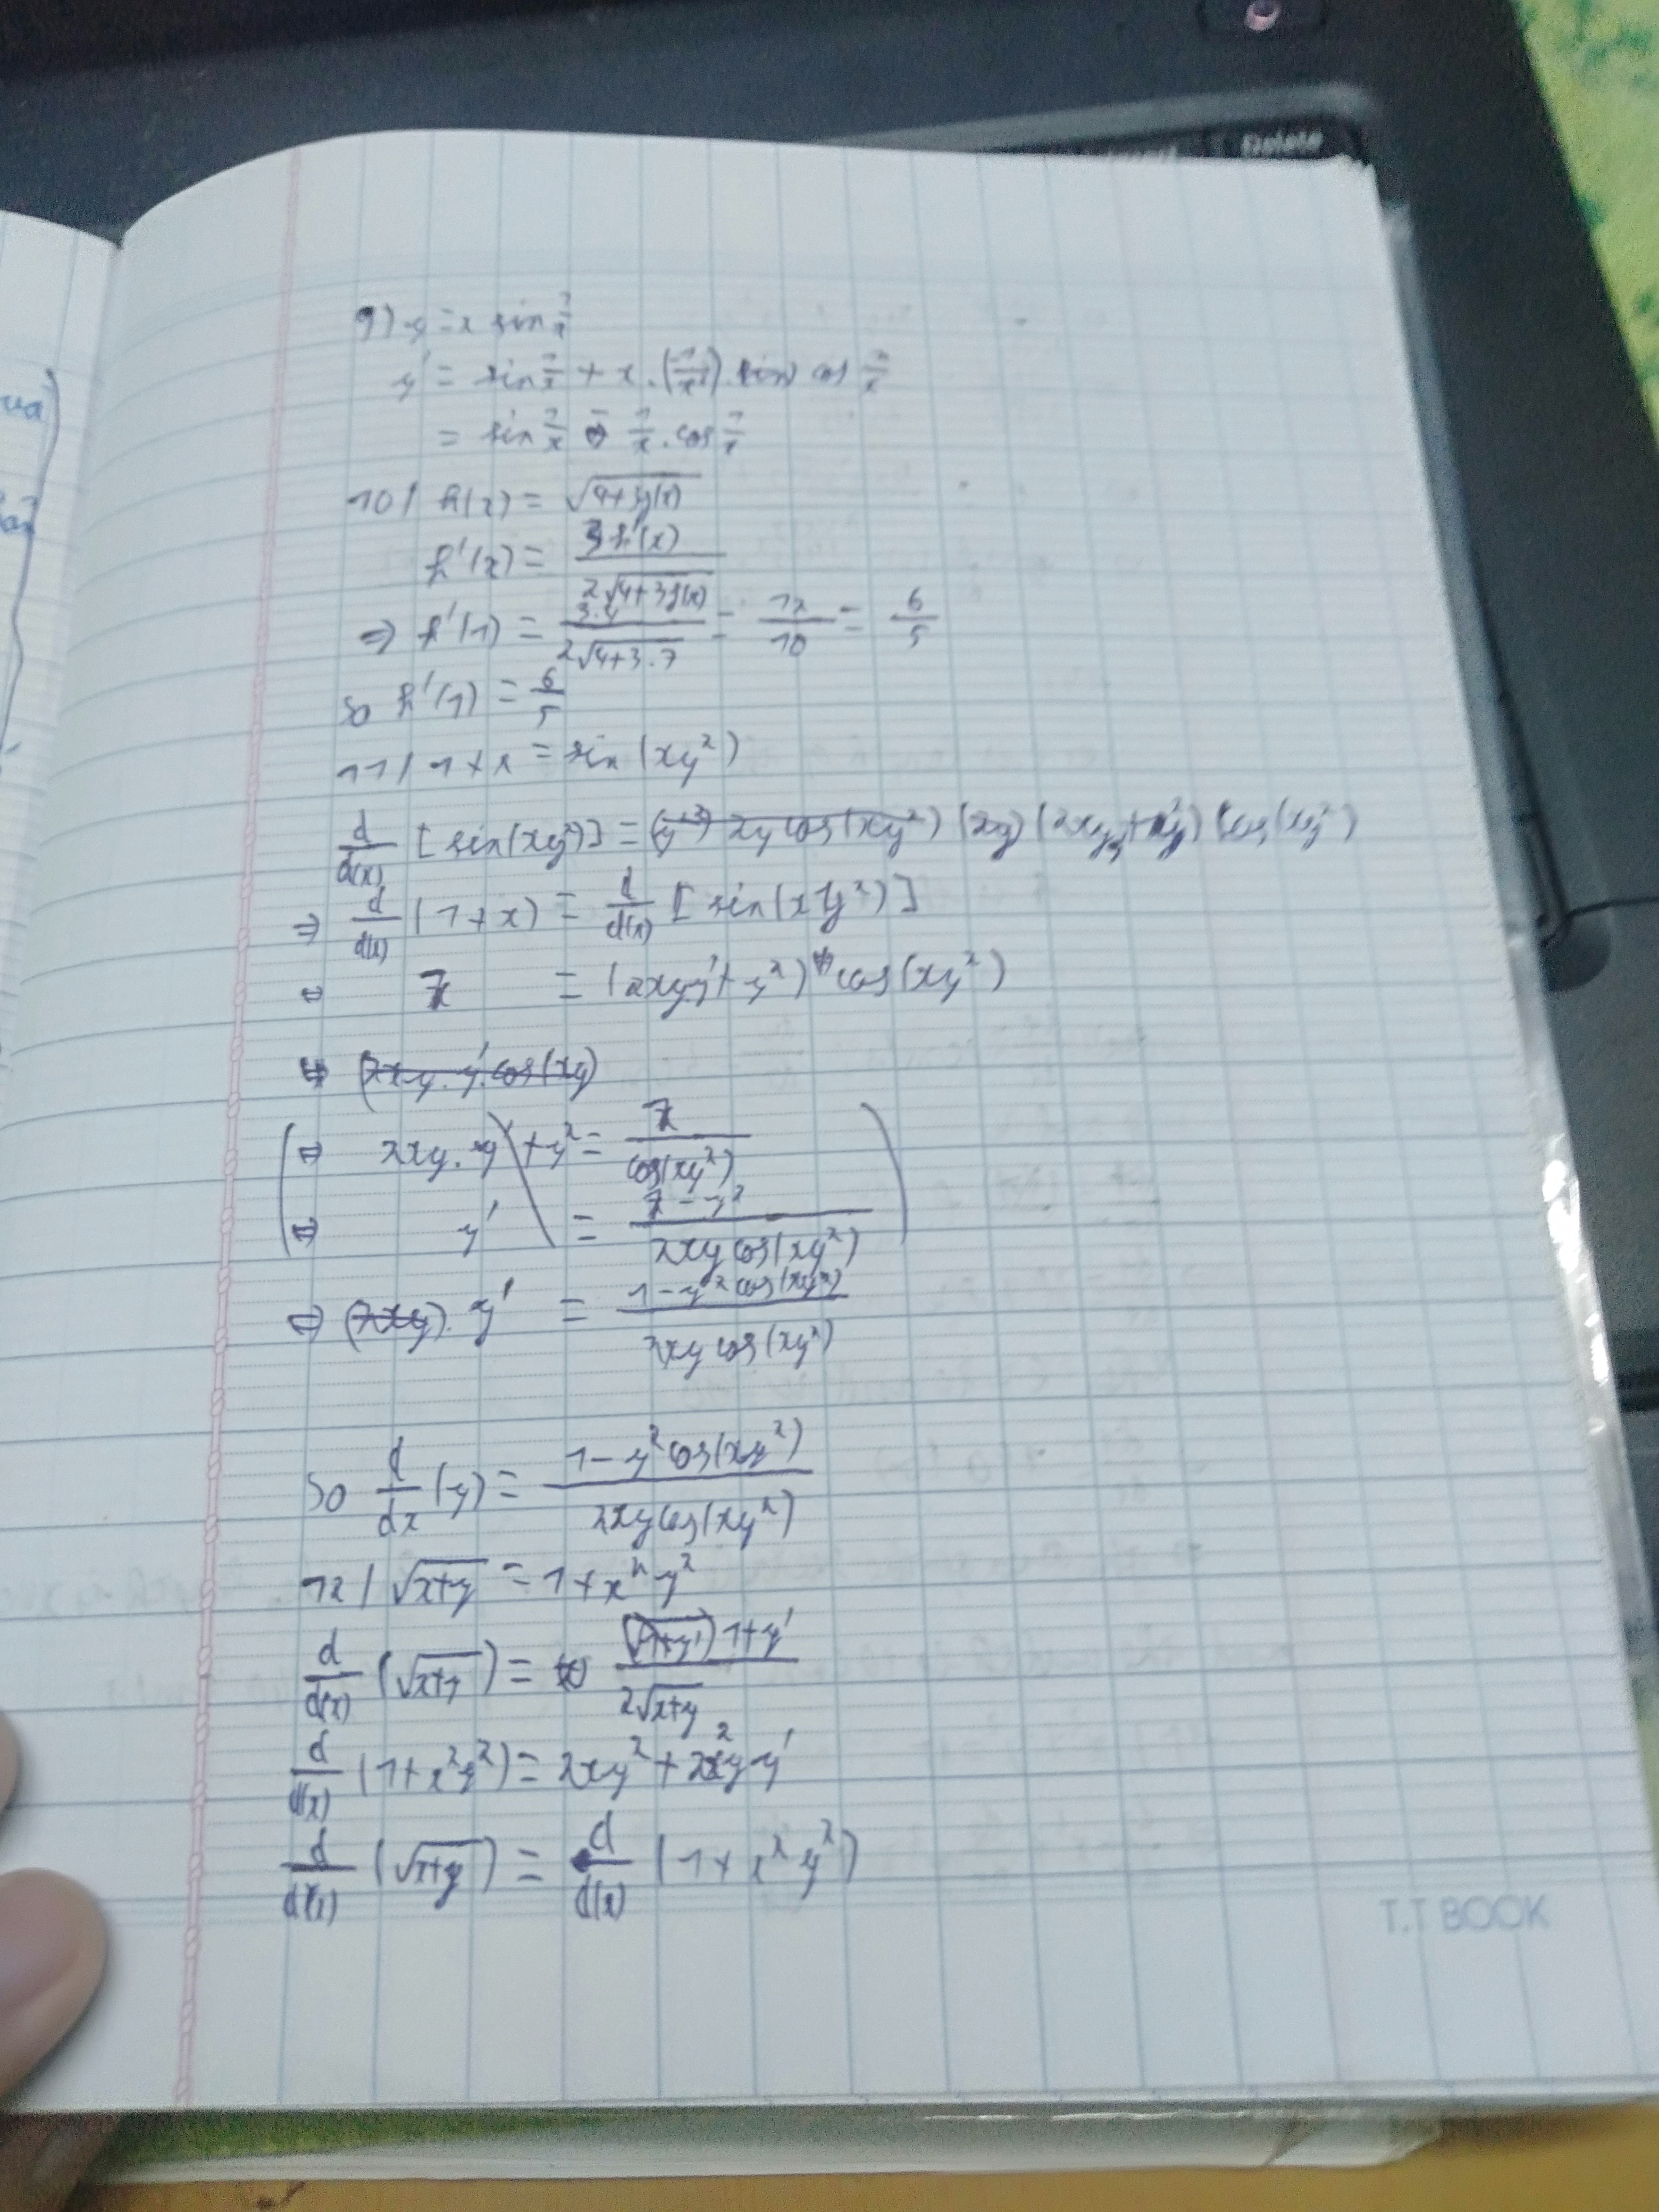 Delete
9) y = x sin 1/x
y' = sin 1/x + x . (-1/x²) . cos 1/x
= sin 1/x - 1/x . cos 1/x
10/ h(x) = √(4+3f(x))
h'(x) = 3f'(x) / 2√(4+3f(x))
⇒ h'(1) = 3.4 / 2√(4+3.7) = 12/10 = 6/5
So h'(1) = 6/5
11/ 1+x = sin(xy²)
d/d(x) [sin(xy²)] = (2xyy'+y²) cos(xy²)
⇒ d/d(x) (1+x) = d/d(x) [sin(xy²)]
⇔ 1 = (2xy.y'+y²) cos(xy²)
⇔ (2xy.y'.cos(xy)
⇔ 2xy.y' + y² = 1 / cos(xy²)
⇔ y' = 1-y² / 2xy cos(xy²)
⇔ (2xy). y' = 1-y² cos(xy²) / 2xy cos(xy²)
So d/dx (y) = 1-y² cos(xy²) / 2xy cos(xy²)
12/ √(x+y) = 1+x²y²
d/d(x) (√(x+y)) = 1+y' / 2√(x+y)
d/d(x) (1+x²y²) = 2xy² + 2x²y y'
d/d(x) (√(x+y)) = d/d(x) (1+x²y²)
T.T BOOK